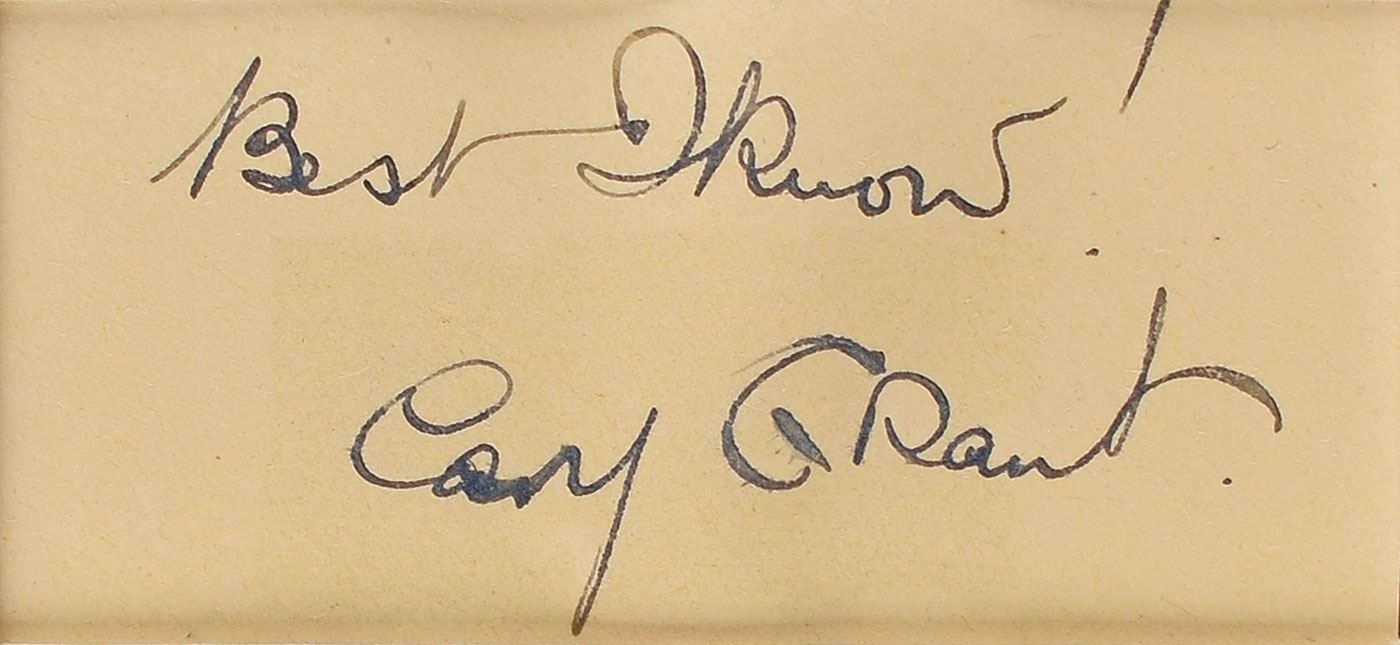 Best I know!
Cary Grant.